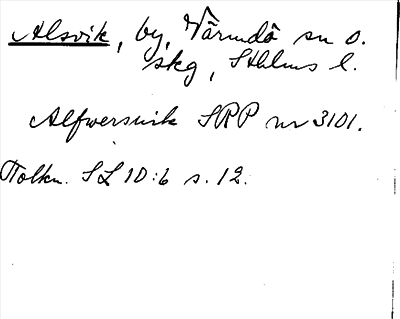 Alsvik, by, Värmdö sn o.
skg, Sthlms l.
Alfwersuik SRP nr 3101.
Tolkn. SL 10:6 s. 12.